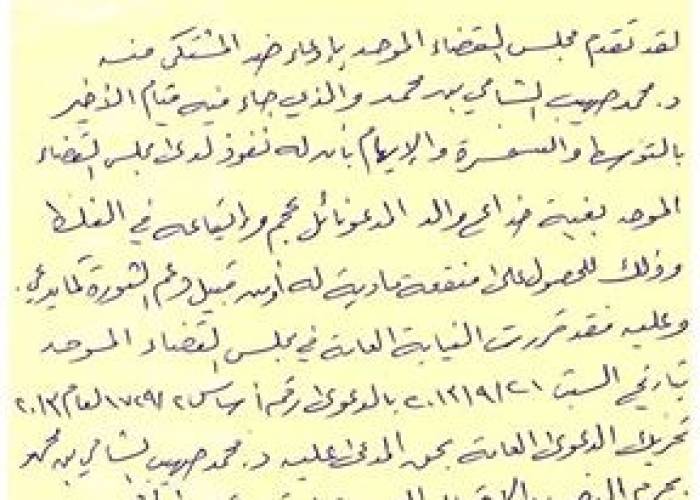 لقد تقدم مجلس القضاء الموحد بإدعاء ضد المشتكى منه
د. محمد صهيب الشامي بن محمد والذي جاء فيه قيام الأخير
بالتوسط والسمسرة والإيهام بأن له نفوذ لدى مجلس القضاء
الموحد بغية خداع والد المدعو نائل عجم وإيقاعه في الغلط
وذلك للحصول على منفعة مادية له أو من قبيل دعم الثورة كما يدعي.
وعليه فقد قررت النيابة العامة في مجلس القضاء الموحد
بتاريخ السبت ٢٠١٣/٩/٢١ بالدعوى رقم أساس لعام ٢٠١٣
تحريك الدعوى العامة بحق المدعى عليه د. محمد صهيب الشامي بن محمد
بجرم